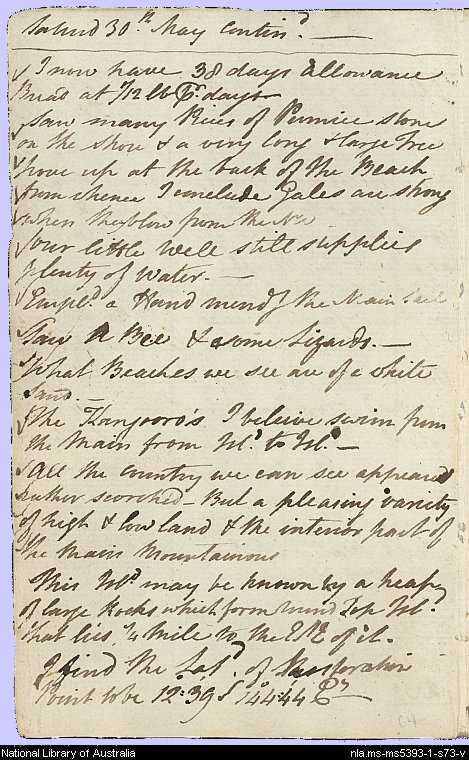 Saturd 30th May Contind. —
I now have 38 days allowance
Bread at 1/12 lb Pr. day —
Saw many Pieces of Pumice stone
on the shore & a very long & large Tree
hove up at the back of the Beach
from whence I conclude Gales are strong
when they blow from the No
our little well still supplies
plenty of water. —
Empld. a Hand mendg the Main Sail
Saw a Bee & some Lizards. —
What Beaches we see are of a white
sand. —
The Kangooro's I believe swim from
the Main from Isld. to Isld. —
All the country we can see appeared
rather scorched — But a pleasing variety
of high & low land & the interior part of
the Main Mountainous
This Isld may be known by a heap
of large Rocks which form Isld.
that lies 1/4 Mile to the of it.
I find the Latd. of Restoration
Point to be 12°.39' S 144.44 E
64
National Library of Australia
nla.ms-ms5393-1-s73-v